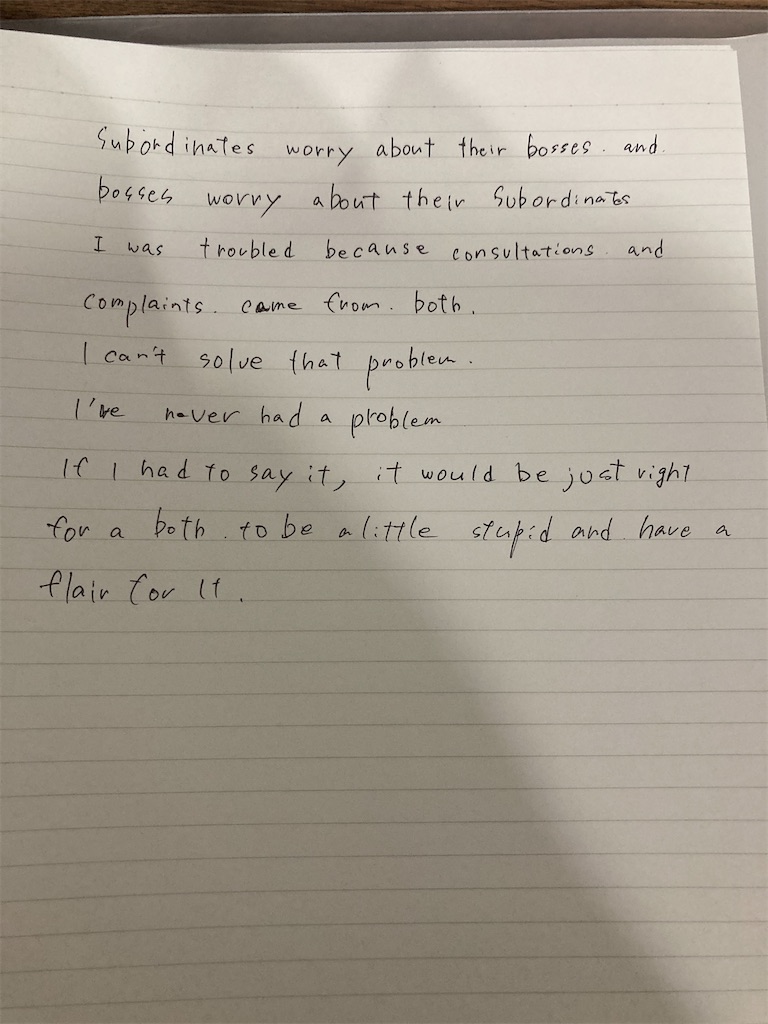 Subordinates worry about their bosses. and.
bosses worry about their Subordinates
I was troubled because consultations. and
complaints. came from. both.
I can't solve that problem.
I've never had a problem
If I had to say it, it would be just right
for a both. to be a little stupid and. have a
flair for it.